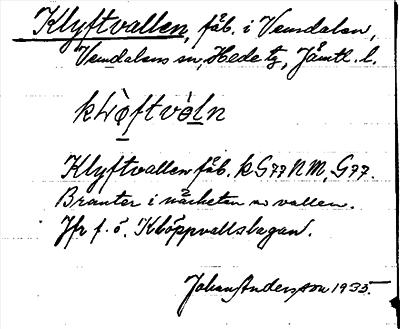 Klyftvallen, fäb. i Vemdalen,
Vemdalens sn, Hede tg, Jämtl. l.
Klyftvallen fäb. k G77 NM, G77.
Branter i närheten av vallen.
Jfr f. ö. Klöppvallshagan.
Johan Andersson 1935.